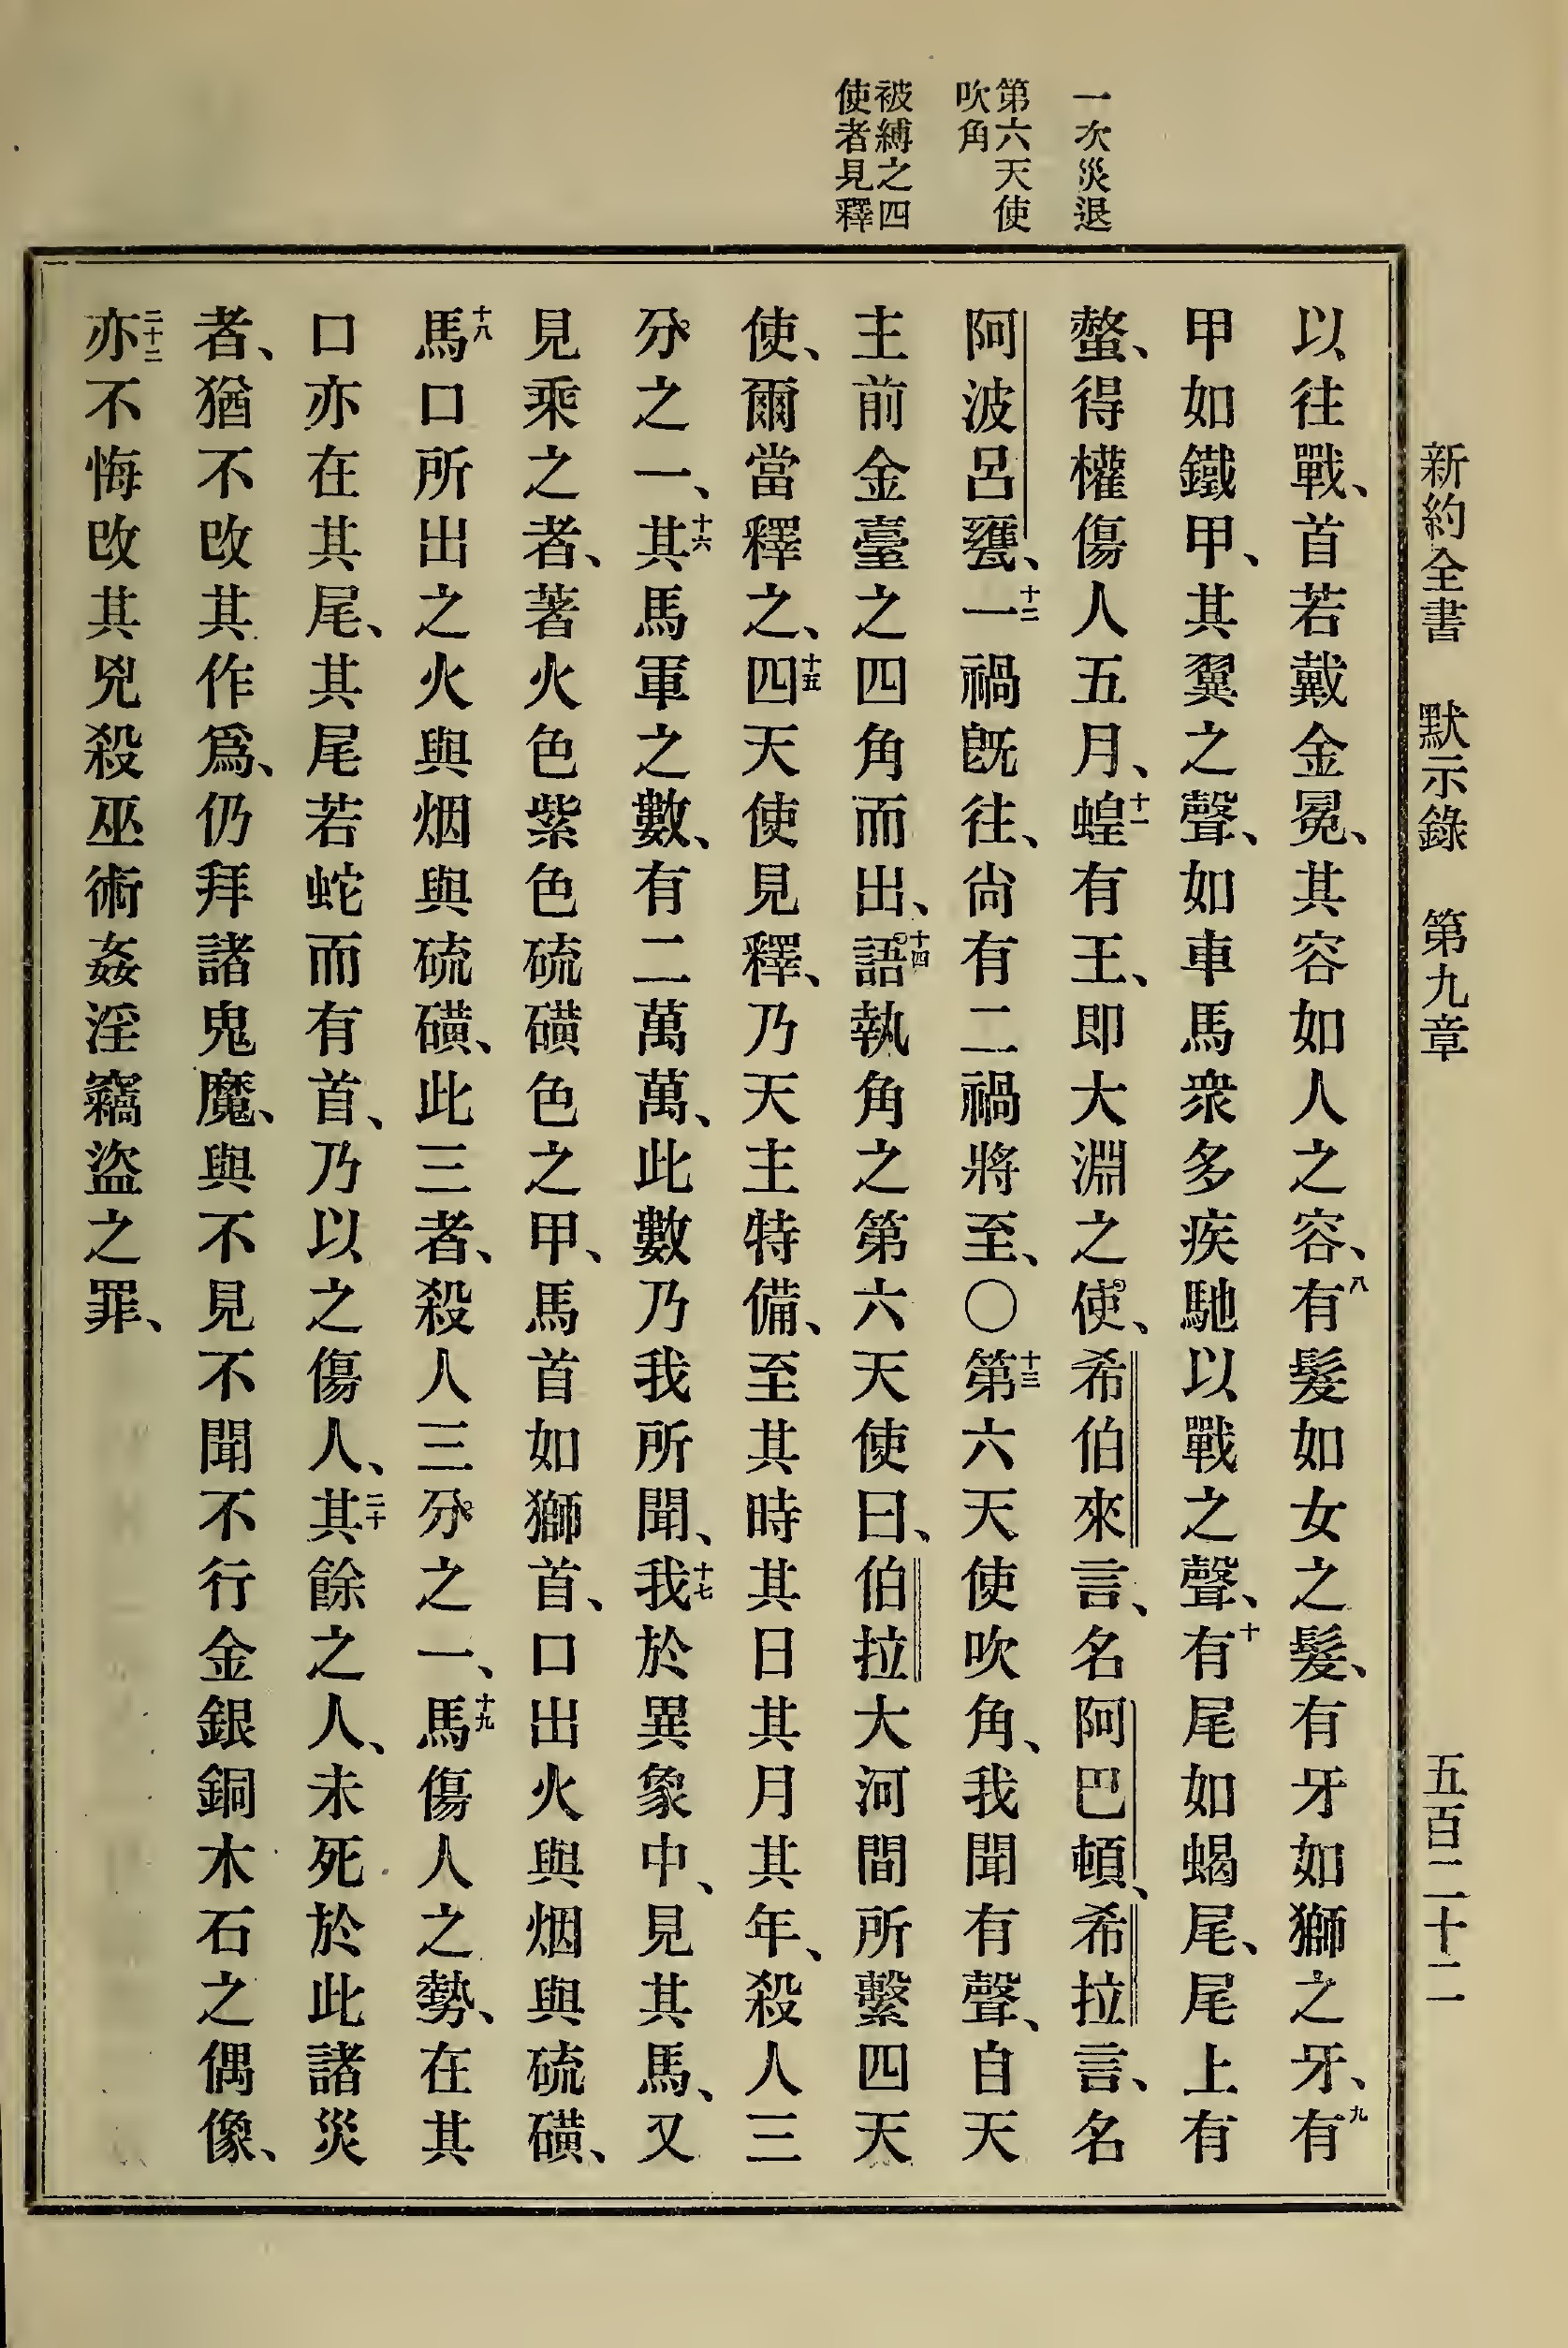 新約全書 默示錄 第九章 五百二十二
一次災退
第六天使
吹角
被縛之四
使者見釋
以往戰、首若戴金冕、其容如人之容、八有髮如女之髮、有牙如獅之牙、九有
甲如鐵甲、其翼之聲、如車馬衆多疾馳以戰之聲、十有尾如蝎尾、尾上有
螫、得權傷人五月、十一蝗有王、即大淵之使、希伯來言、名阿巴頓、希拉言、名
阿波呂甕、十二一禍旣往、尙有二禍將至、〇十三第六天使吹角、我聞有聲、自天
主前金臺之四角而出、十四語執角之第六天使曰、伯拉大河間所繫四天
使、爾當釋之、十五四天使見釋、乃天主特備、至其時其日其月其年、殺人三
分之一、十六其馬軍之數、有二萬萬、此數乃我所聞、十七我於異象中、見其馬、又
見乘之者、著火色紫色硫磺色之甲、馬首如獅首、口出火與烟與硫磺、
十八馬口所出之火與烟與硫磺、此三者、殺人三分之一、十九馬傷人之勢、在其
口亦在其尾、其尾若蛇而有首、乃以之傷人、二十其餘之人、未死於此諸災
者、猶不改其作爲、仍拜諸鬼魔、與不見不聞不行金銀銅木石之偶像、
二十二亦不悔改其兇殺巫術姦淫竊盜之罪、